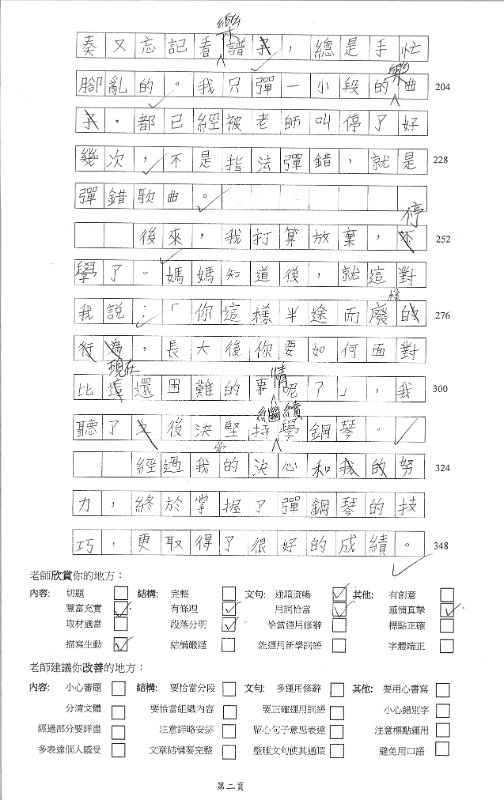 樂
奏又忘記看譜子，總是手忙
腳亂的。我只彈一小段的樂曲 204
子。都已經被老師叫停了好
幾次，不是指法彈錯，就是 228
彈錯歌曲。
停
後來，我打算放棄，不 252
學了。媽媽知道後，就這對
我說：「你這樣半途而廢的 276
行為，長大後你要如何面對
現在 情
比這還困難的事呢？」，我 300
繼續
聽了之後決堅持學鋼琴。
經過我的決心和我的努 324
力，終於掌握了彈鋼琴的技
巧，更取得了很好的成績。 348
老師欣賞你的地方：
內容: 切題 結構: 完整 文句: 通順流暢 其他: 有創意
豐富充實 有條理 用詞恰當 感情真摯
取材適當 段落分明 恰當運用修辭 標點正確
描寫生動 結構嚴謹 能運用新學詞語 字體端正
老師建議你改善的地方：
內容: 小心審題 結構: 要恰當分段 文句: 多運用修辭 其他: 要用心書寫
分清文體 要恰當組織內容 要正確運用詞語 小心錯別字
經過部分要詳盡 注意詳略安排 留心句子意思表達 注意標點運用
多表達個人感受 文章結構要完整 整理文句使其通順 避免用口語
第二頁